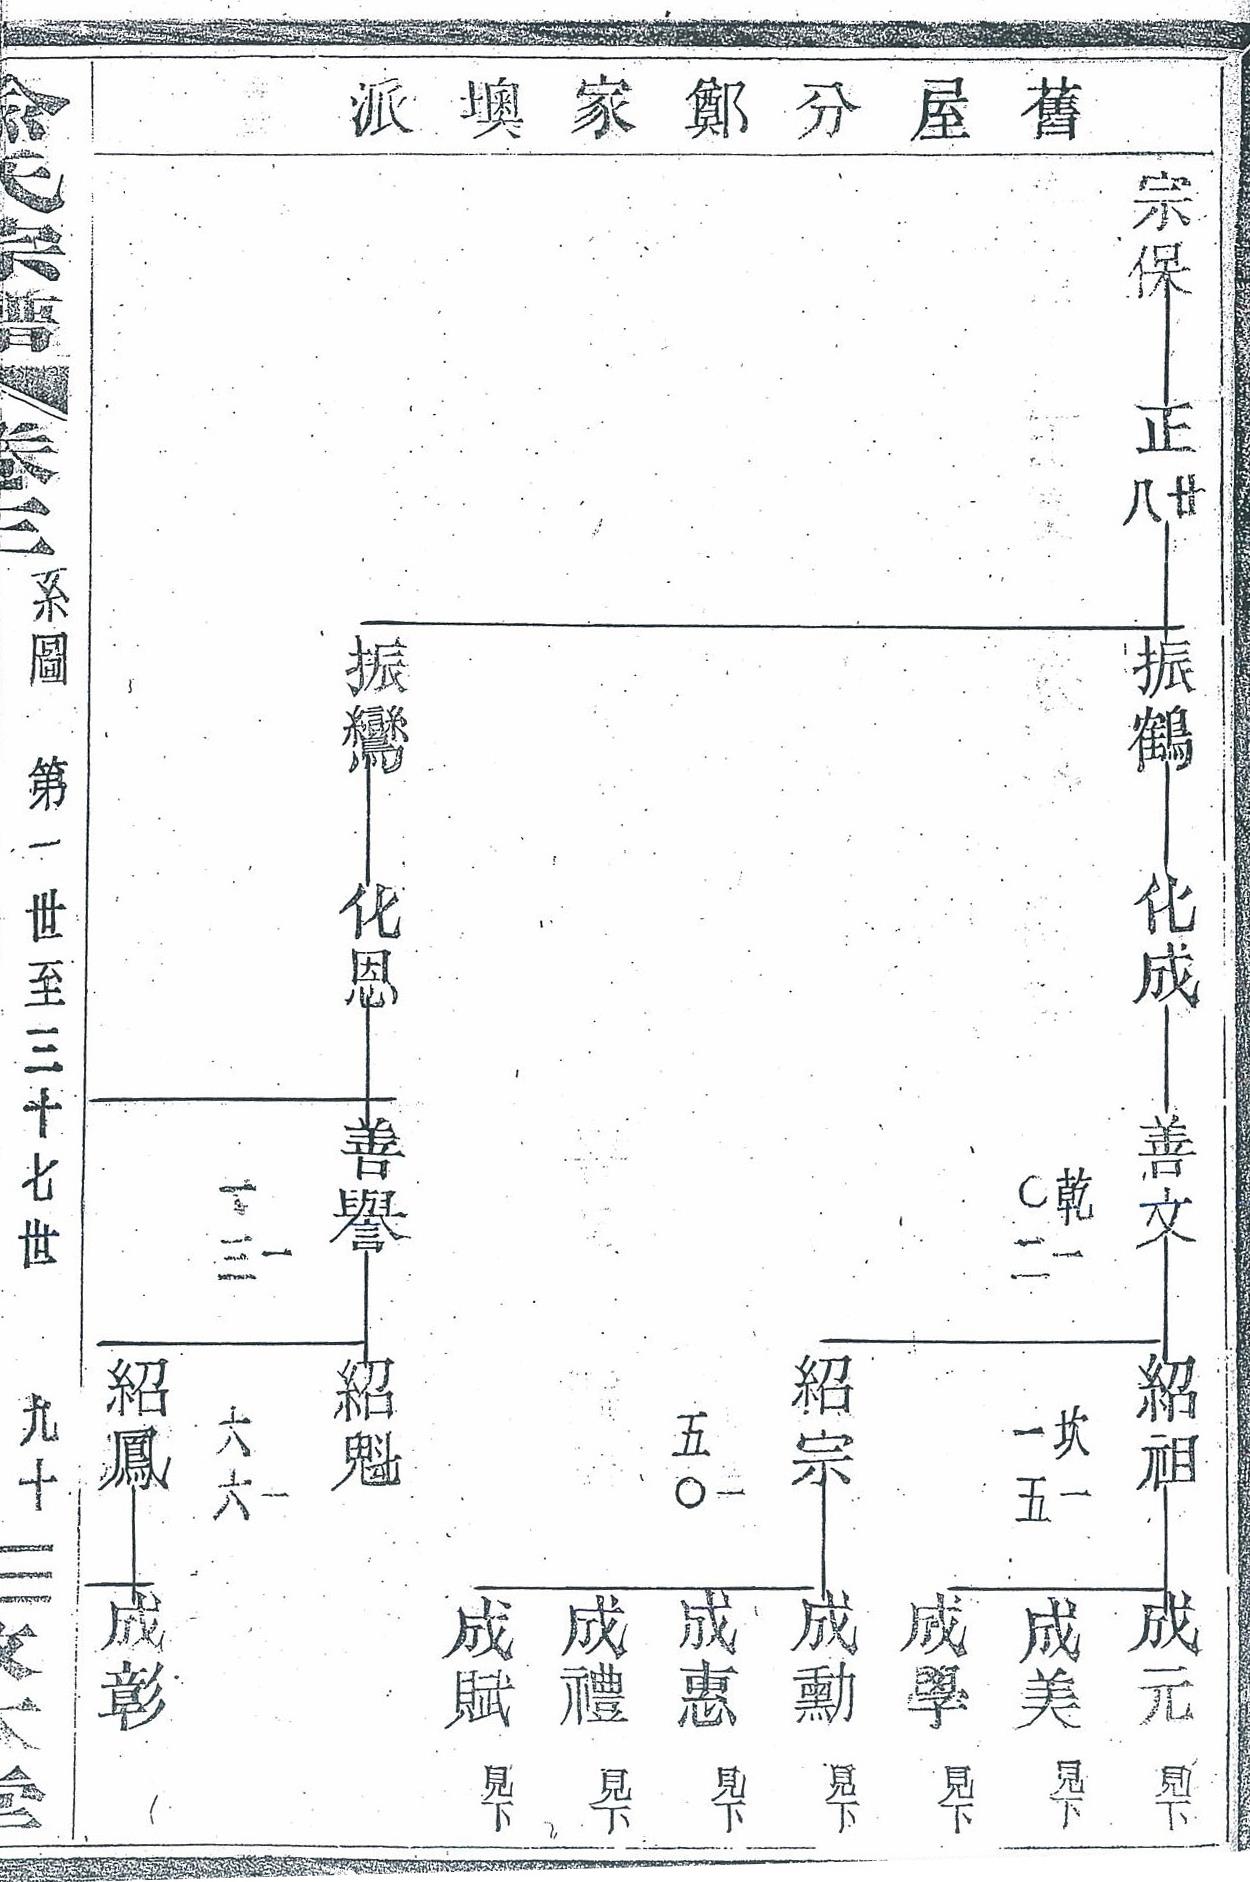 舊屋分鄭家墺派
宗保
正廿八
振鶴
振鸞
化成
化恩
善文
乾一
〇二
善譽
一
三
紹祖
坎一
一五
紹宗
一
五〇
紹魁
一
六六
紹鳳
成元 見下
成美 見下
成學 見下
成勳 見下
成惠 見下
成禮 見下
成賦 見下
成彰
氏宗譜
卷三
系圖 第一世至三十七世 九十
三